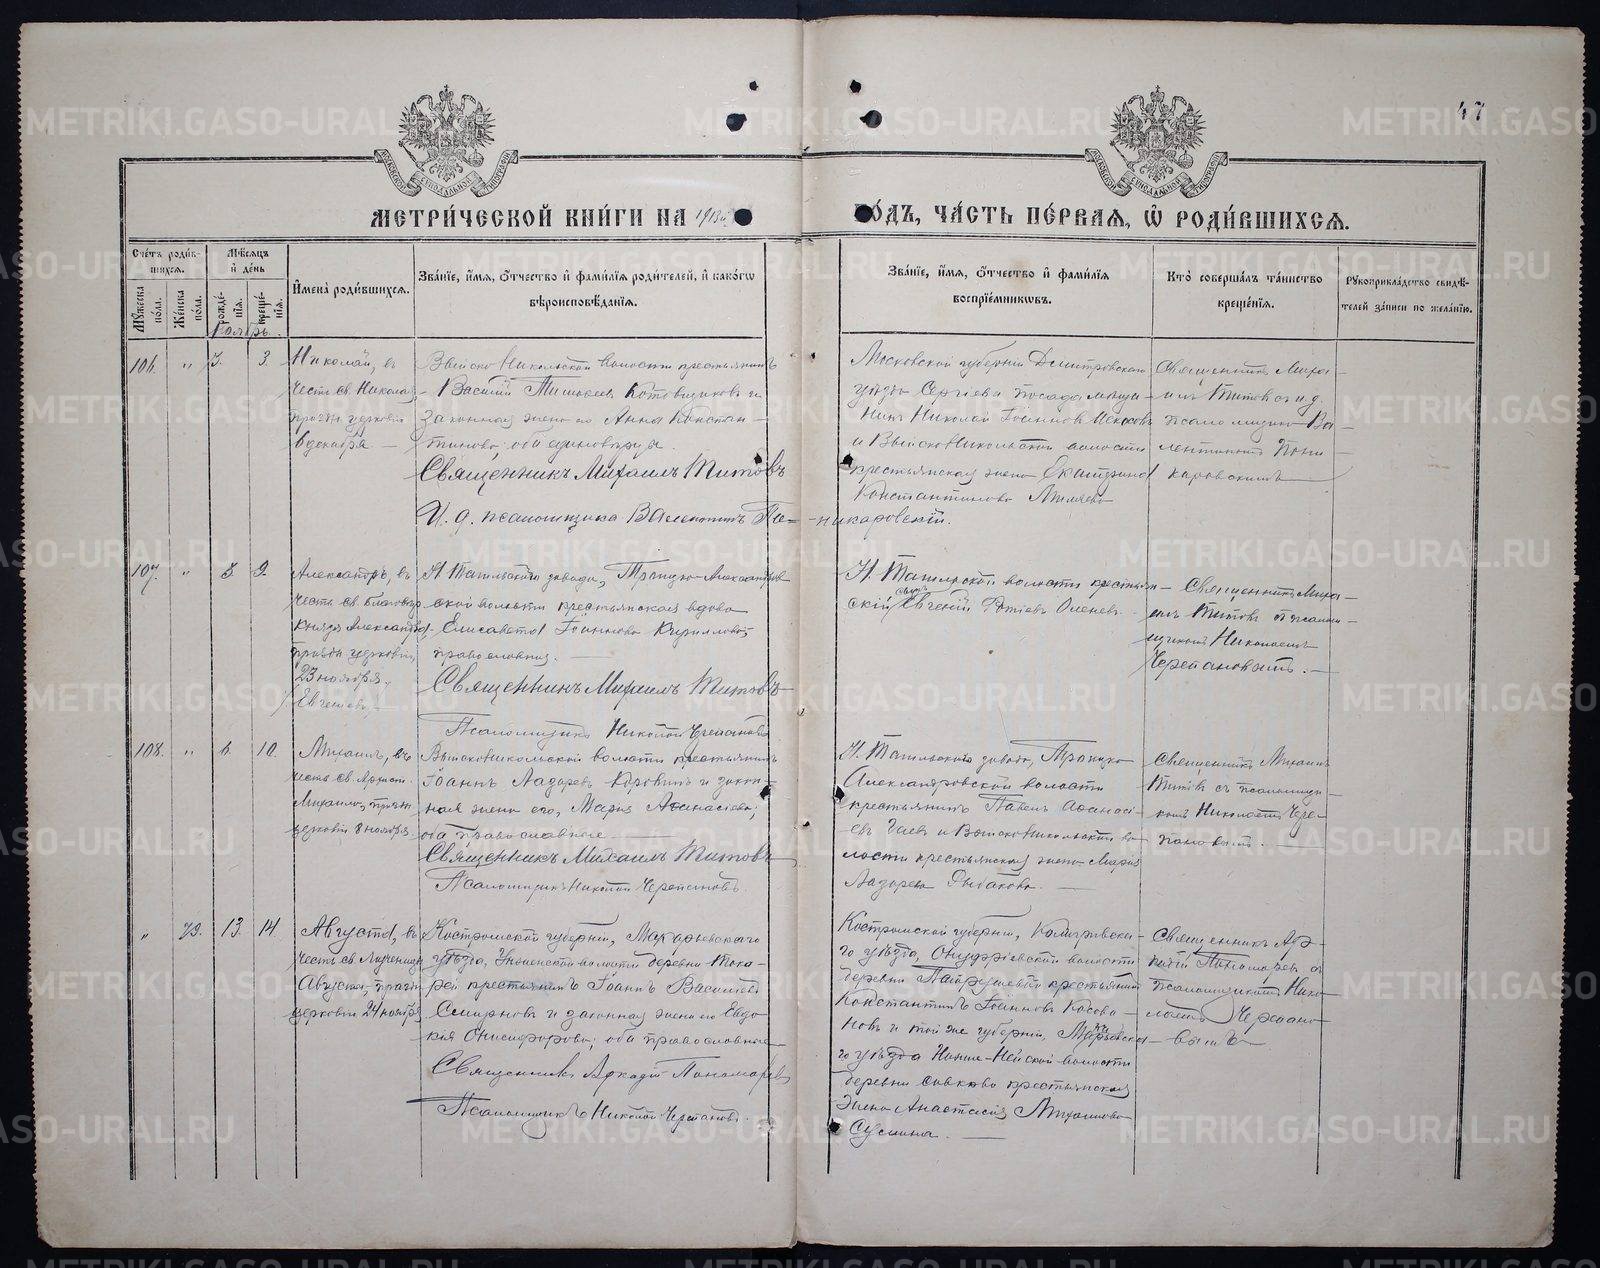 47
МОСКОВСКОЙ СѴНОДАЛЬНОЙ ТИПОГРАФІИ
МОСКОВСКОЙ СѴНОДАЛЬНОЙ ТИПОГРАФІИ
МЕТРИ́ЧЕСКОЙ КНИ́ГИ НА 1913й
ГО́ДЪ, ЧА́СТЬ ПЕ́РВАЯ, Ѡ РОДИ́ВШИХСЯ.
Сче́тъ роди́в-
шихся.
Му́жеска по́ла.
Же́нска по́ла.
Мѣ́сяцъ
и де́нь
рожде́нія.
креще́нія.
Имена̀ роди́вшихся.
Зва́ніе, и́мя, о́тчество и фами́лія роди́телей, и како́гѡ
вѣроисповѣ́данія.
Зва́ніе, и́мя, о́тчество и фами́лія
воспріе́мниковъ.
Кто̀ соверша́лъ та́инство
креще́нія.
Рукоприкла́дство свидѣ́-
телей за́писи по жела́нію.
Ноябрь.
106. " 3.
Николай, въ
честь св. Николая,
празн. церковію
6 декабря —
Выйско Никольской волости крестьянинъ
Василій Котовщиковъ и
законная жена его Анна Констан-
тинова; оба единовѣрцы.
Священникъ Михаилъ Титовъ
И. д. псаломщика Валентинъ По-
никаровскій.
Московской губерніи Дмитровскаго
уѣзда Сергіева посада мѣща-
нинъ Николай Іоанновъ
и Выйско Никольской волости
крестьянская жена Екатерина
Константинова
Священникъ Миха-
илъ Титовъ и и.д.
псаломщика Ва-
лентинъ Пони-
каровскимъ
107. " 9.
Александръ, въ
честь св. благовѣр.
Князя Александра
празн. церковію,
23 ноября.
Н. Тагильскаго завода, Троицко-Александров-
ской волости крестьянская вдова
Елисавета Іоаннова Кириллова,
православная. —
Священникъ Михаилъ Титовъ
Псаломщикъ Николай Черепановъ
Н. Тагильской волости крестьян-
скій сынъ Евгеній Оленевъ.
Священникъ Миха-
илъ Титовъ съ псалом-
щикомъ Николаемъ
Черепановымъ. —
108. " 6. 10.
Михаилъ, въ
честь св. Архист.
Михаила, празн.
церковію 8 ноября.
Выйско Никольской волости крестьянинъ
Іоаннъ Лазаревъ и закон-
ная жена его, Марія Аѳанасіева;
оба православные —
Священникъ Михаилъ Титовъ
Псаломщикъ Николай Черепановъ.
Н. Тагильскаго завода, Троицко
Александровской волости
крестьянинъ Павелъ Аѳанась-
евъ и Выйско Никольской во-
лости крестьянская жена Марія
Лазарева Рыбакова. —
Священникъ Михаилъ
Титовъ съ псаломщи-
комъ Николаемъ Чере-
пановымъ. —
" 79. 13. 14.
Августа, въ
честь св. Мученицы
Августы, празн.
церковію 24 ноября
Костромской губерніи, Макарьевскаго
уѣзда, волости деревни Тока-
рей крестьянинъ Іоаннъ Васильевъ
Смирновъ и законная жена его Евдо-
кія Онисифорова; оба православные
Священникъ Аркадій Пономаревъ
Псаломщикъ Николай Черепановъ.
Костромской губерніи, Кологривска-
го уѣзда, Онуфріевской волости
деревни крестьянинъ
Константинъ Іоанновъ
новъ и той же губерніи, Макарьевска-
го уѣзда волости
деревни крестьянская
жена Анастасія Михаилова
Суслина. —
Священникъ Ар-
кадій Пономаревъ съ
псаломщикомъ Нико-
лаемъ Черепано-
вымъ
METRIKI.GASO-URAL.RU